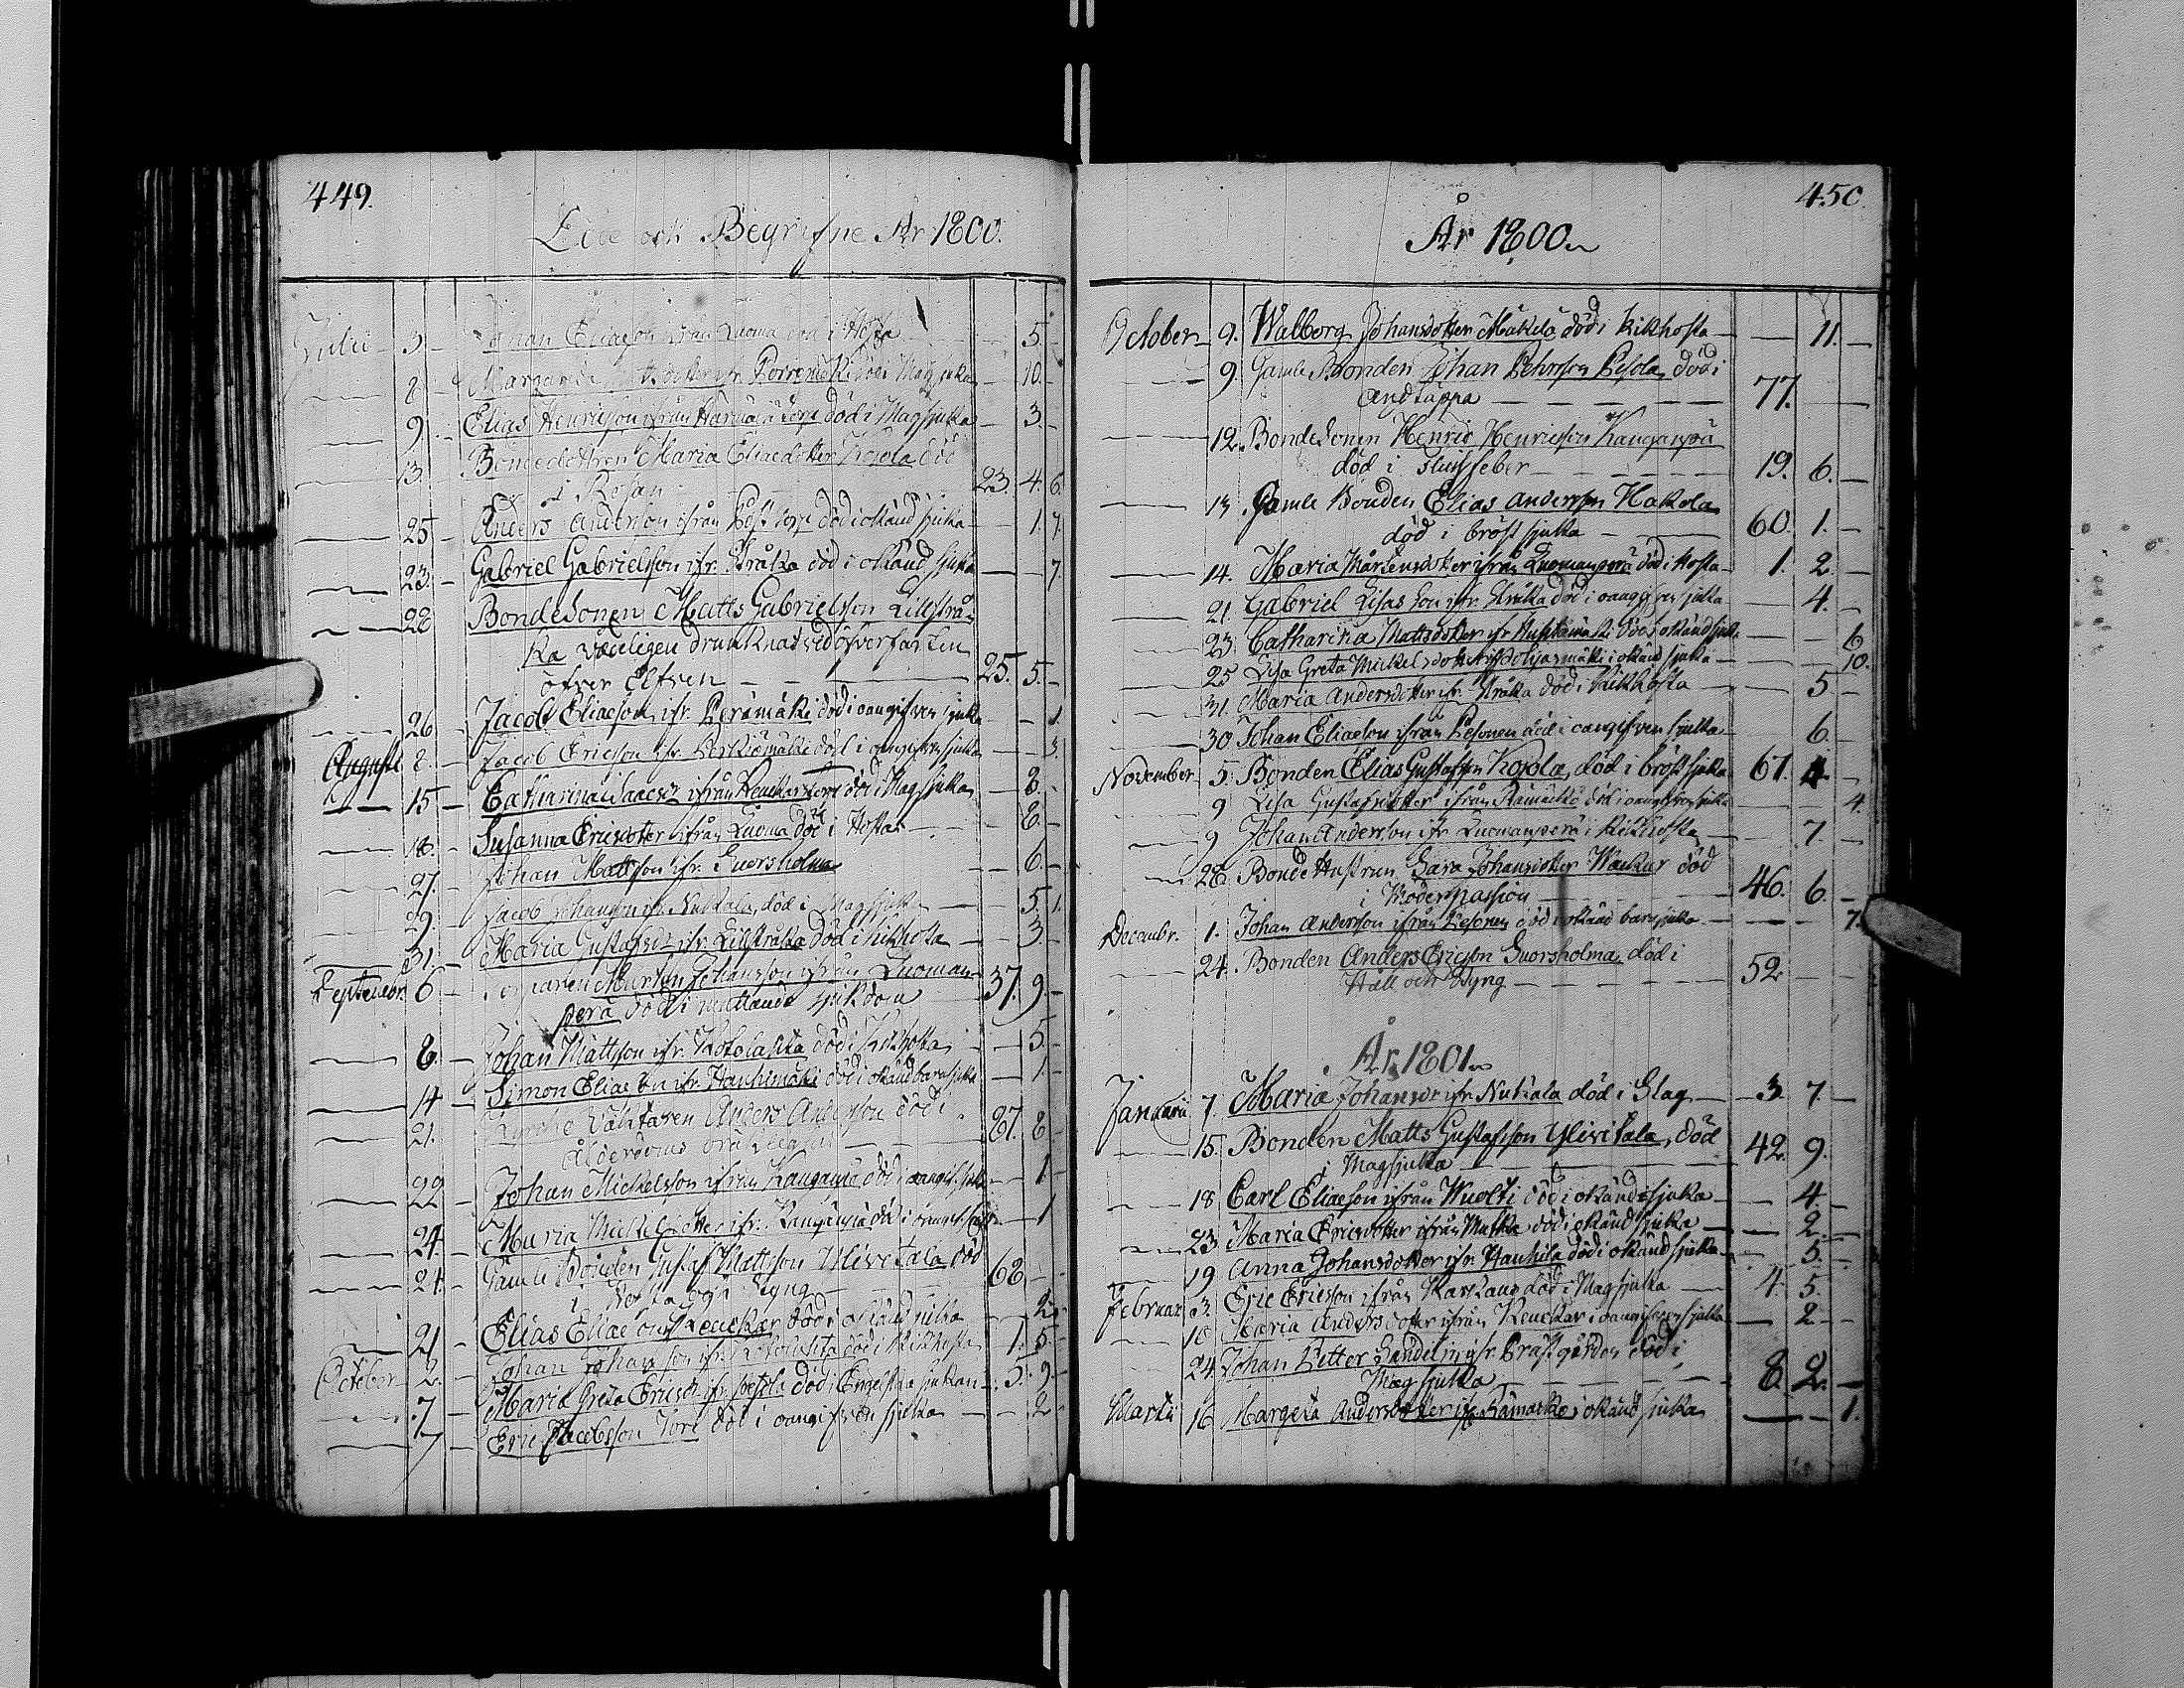 449.
Döde och Begrafne År 1800.
Julii 3. Johan Eliaeson ifrån Luoma död i Hosta 5.
8 Margareta Mattsdotter ifr. död i Magsjuka 10.
9. Elias Henricsson ifrån död i Magsjuka 3.
13. Bondedottren Maria Eliaedotter Kojola död
i Rosan 23. 4. 6
25 Anders Andersson ifrån död i okänd sjuka 1. 7.
23. Gabriel Gabrielsson ifr. Stråka död i okänd sjuka 7.
28 BondeSonen Matts Gabrielsson Lillstrå-
ka vådeligen drunknat vid öfverfarten
öfver Elfven 25. 5.
26 Jacob Eliaeson ifr. Perämäki död i oangifven sjuka 1.
Augusti 8. Jacob Ericsson ifr. död i oangifven sjuka 3.
15 Catharina Isaacsdr ifrån död i Magsjuka 8.
18. Susanna Ericsdotter ifrån Luoma död i Hosta 8.
27. Johan Mattsson ifr. Suorsholma 6.
29. Jacob Johansson ifr. Nukala, död i Magsjuka 5. 1.
31. Maria Gustafsdr ifr. Lillstråka död i kikhosta 3.
September 6 Mårten Johansson ifrån Luoman-
perä död i sjukdom 37. 9.
8. Johan Mattsson ifr. död i Kikhosta 5
14 Simon Eliaeson ifr. Hanhimäki död i okänd barnsjuka 1
21. Kyrko Väktaren Anders Andersson död i
ålderdoms bräcklighet 87. 8
22 Johan Mickelsson ifrån Kangasniä död i oangif. sjuka 1
24. Maria Mickelsdotter ifr. död i oangif. sjuka 1
24. Gamle Bonden Gustaf Mattsson Ylivitala död
i Hosta och Tyng 68
21 Elias Eliaeson död i okänd sjuka 2
October 2. Johan Johansson ifr. död i Kikhosta 1. 5.
7 Maria Greta Ericsdr ifr. Pesola död i Engelska sjukan 5. 9.
7 Eric Jacobsson död i oangifven sjuka 2
450.
År 1800.
October 9. Walborg Johansdotter Mäkelä död i kikhosta 11.
9. Gamle Bonden Johan Pehrsson Pesola, död i
andtäppa 77.
12. BondeSonen Henric Henricsson Kangasniä
död i feber 19. 6.
13. Gamle Bonden Elias Andersson Hakola
död i bröstsjuka 60. 1.
14. Maria Mårtensdotter ifrån Luomanperä död i Hosta 1. 2.
21. Gabriel Lisas Son ifr. Stråka död i oangifven sjuka 4.
23. Catharina Mattsdotter ifr. död i okänd sjuka 6
25 Lisa Greta Mickelsdotter i okänd sjuka 10.
31. Maria Andersdotter ifr. Stråka död i Kikhosta 5
30. Johan Eliaeson ifrån Pesonen död i oangifven sjuka 6.
November 5. Bonden Elias Gustafsson Kojola, död i bröstsjuka 67. 4.
9 Lisa Gustafsdotter ifrån Rämäckö död i oangifven sjuka 4.
9 Johan Andersson ifr. Luomanperä i Kikhosta 7.
28 BondeHustrun Sara Johansdotter Waukur död
i Moderpassion 46. 6.
Decembr. 1. Johan Andersson ifrån Pesonen död i okänd barnsjuka 7.
24. Bonden Anders Ericson Suorsholma, död i
Håll och Styng 52
År 1801.
Januarii 7. Maria Johansdr ifr. Nukala död i Slag 3. 7.
15. Bonden Matts Gustafsson Ylivitala, död
i Magsjuka 42. 9.
18 Carl Eliaeson ifrån Wuolti död i okänd sjuka 4.
23 Maria Ericsdotter ifrån Matka död i okänd sjuka 2.
19 Anna Johansdotter ifr. Hanhila död i okänd sjuka 5.
Februar. 3. Eric Ericsson ifrån Karhaus död i Magsjuka 4. 5.
18 Maria Andersdotter ifrån Renckar i oangifven sjuka 2
24. Johan Petter Sandelin ifr. Prästgården död i
Magsjuka 8. 2.
Martii 16 Margeta Andersdotter ifr. Rämäckö i okänd sjuka 1.